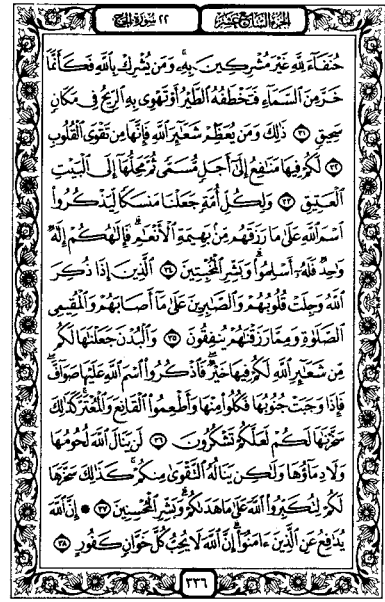 الجزء السابع عشر
٢٢ سورة الحج
حُنَفَآءَ لِلَّهِ غَيْرَ مُشْرِكِينَ بِهِۦ وَمَن يُشْرِكْ بِٱللَّهِ فَكَأَنَّمَا
خَرَّ مِنَ ٱلسَّمَآءِ فَتَخْطَفُهُ ٱلطَّيْرُ أَوْ تَهْوِى بِهِ ٱلرِّيحُ فِى مَكَانٍ
سَحِيقٍ ٣١ ذَٰلِكَ وَمَن يُعَظِّمْ شَعَٰٓئِرَ ٱللَّهِ فَإِنَّهَا مِن تَقْوَى ٱلْقُلُوبِ
٣٢ لَكُمْ فِيهَا مَنَٰفِعُ إِلَىٰٓ أَجَلٍ مُّسَمًّى ثُمَّ مَحِلُّهَآ إِلَى ٱلْبَيْتِ
ٱلْعَتِيقِ ٣٣ وَلِكُلِّ أُمَّةٍ جَعَلْنَا مَنسَكًا لِّيَذْكُرُوا۟
ٱسْمَ ٱللَّهِ عَلَىٰ مَا رَزَقَهُم مِّنۢ بَهِيمَةِ ٱلْأَنْعَٰمِ ۗ فَإِلَٰهُكُمْ إِلَٰهٌ
وَٰحِدٌ فَلَهُۥٓ أَسْلِمُوا۟ ۗ وَبَشِّرِ ٱلْمُخْبِتِينَ ٣٤ ٱلَّذِينَ إِذَا ذُكِرَ
ٱللَّهُ وَجِلَتْ قُلُوبُهُمْ وَٱلصَّٰبِرِينَ عَلَىٰ مَآ أَصَابَهُمْ وَٱلْمُقِيمِى
ٱلصَّلَوٰةِ وَمِمَّا رَزَقْنَٰهُمْ يُنفِقُونَ ٣٥ وَٱلْبُدْنَ جَعَلْنَٰهَا لَكُم
مِّن شَعَٰٓئِرِ ٱللَّهِ لَكُمْ فِيهَا خَيْرٌ ۖ فَٱذْكُرُوا۟ ٱسْمَ ٱللَّهِ عَلَيْهَا صَوَآفَّ ۖ
فَإِذَا وَجَبَتْ جُنُوبُهَا فَكُلُوا۟ مِنْهَا وَأَطْعِمُوا۟ ٱلْقَانِعَ وَٱلْمُعْتَرَّ ۚ كَذَٰلِكَ
سَخَّرْنَٰهَا لَكُمْ لَعَلَّكُمْ تَشْكُرُونَ ٣٦ لَن يَنَالَ ٱللَّهَ لُحُومُهَا
وَلَا دِمَآؤُهَا وَلَٰكِن يَنَالُهُ ٱلتَّقْوَىٰ مِنكُمْ ۚ كَذَٰلِكَ سَخَّرَهَا
لَكُمْ لِتُكَبِّرُوا۟ ٱللَّهَ عَلَىٰ مَا هَدَىٰكُمْ ۗ وَبَشِّرِ ٱلْمُحْسِنِينَ ٣٧ ۞ إِنَّ ٱللَّهَ
يُدَٰفِعُ عَنِ ٱلَّذِينَ ءَامَنُوٓا۟ ۗ إِنَّ ٱللَّهَ لَا يُحِبُّ كُلَّ خَوَّانٍ كَفُورٍ ٣٨
٣٣٦